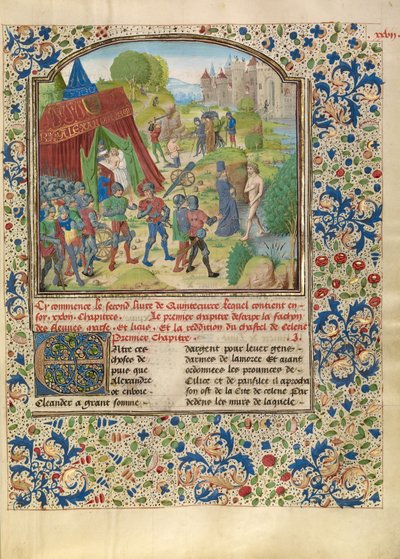 xxvii
ALEXANDRE
Cy commence le second liure de Quintecurce lequel contient en
soy . xxxii . Chapitres. Le premier chapitre descripe la fachon
des fleuues marse . Et licus . Et la reddition du chastel de celene
Premier Chapitre .
Altre ces
choses de
puis que
Alexandre
ot enuoie
Cleander a grant somme
dargent pour leuer gens
darmes de lamoree Et aiant
ordonnees les prouinces de
Cilice et de panfilie il aprocha
son ost de la Cite de celene Par
dedens les murs de laquele